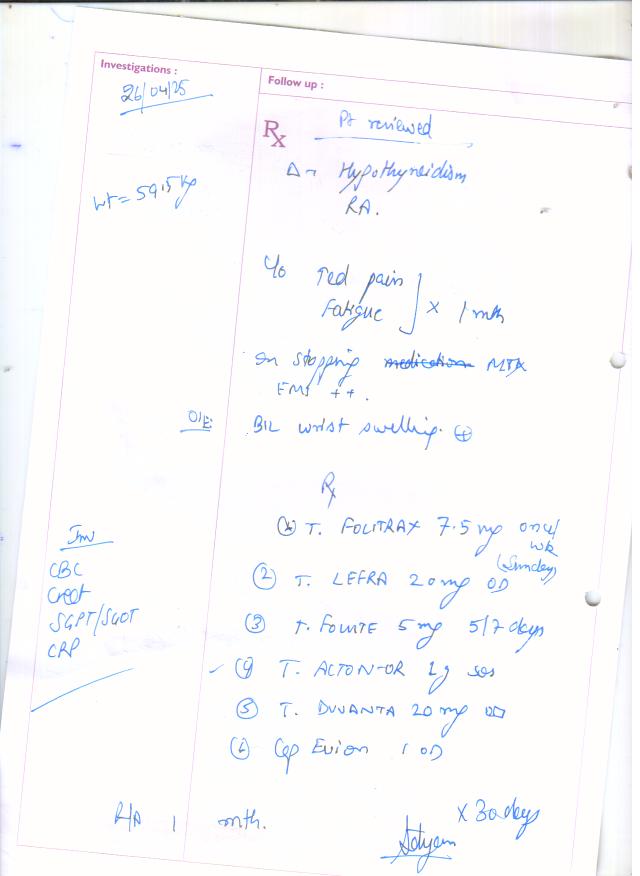 Investigations :
26/04/25
Wt = 59.5 kg
Follow up :
Rx
Pt reviewed
Δ - Hypothyroidism
RA.
C/o
↑ed pain
Fatigue
x 1 mth
on stopping medication MTX
EMS ++.
O/E:
B/L wrist swelling. +
Rx
Inv
CBC
Creat
SGPT/SGOT
CRP
① T. FOLITRAX 7.5 mg once/
wk
(Sunday)
② T. LEFRA 20 mg OD
③ T. FOLITE 5 mg 5/7 days
④ T. 1g sos
⑤ T. 20 mg OD
⑥ Cap Evion 1 OD
x 30 days
R/A 1 mth.